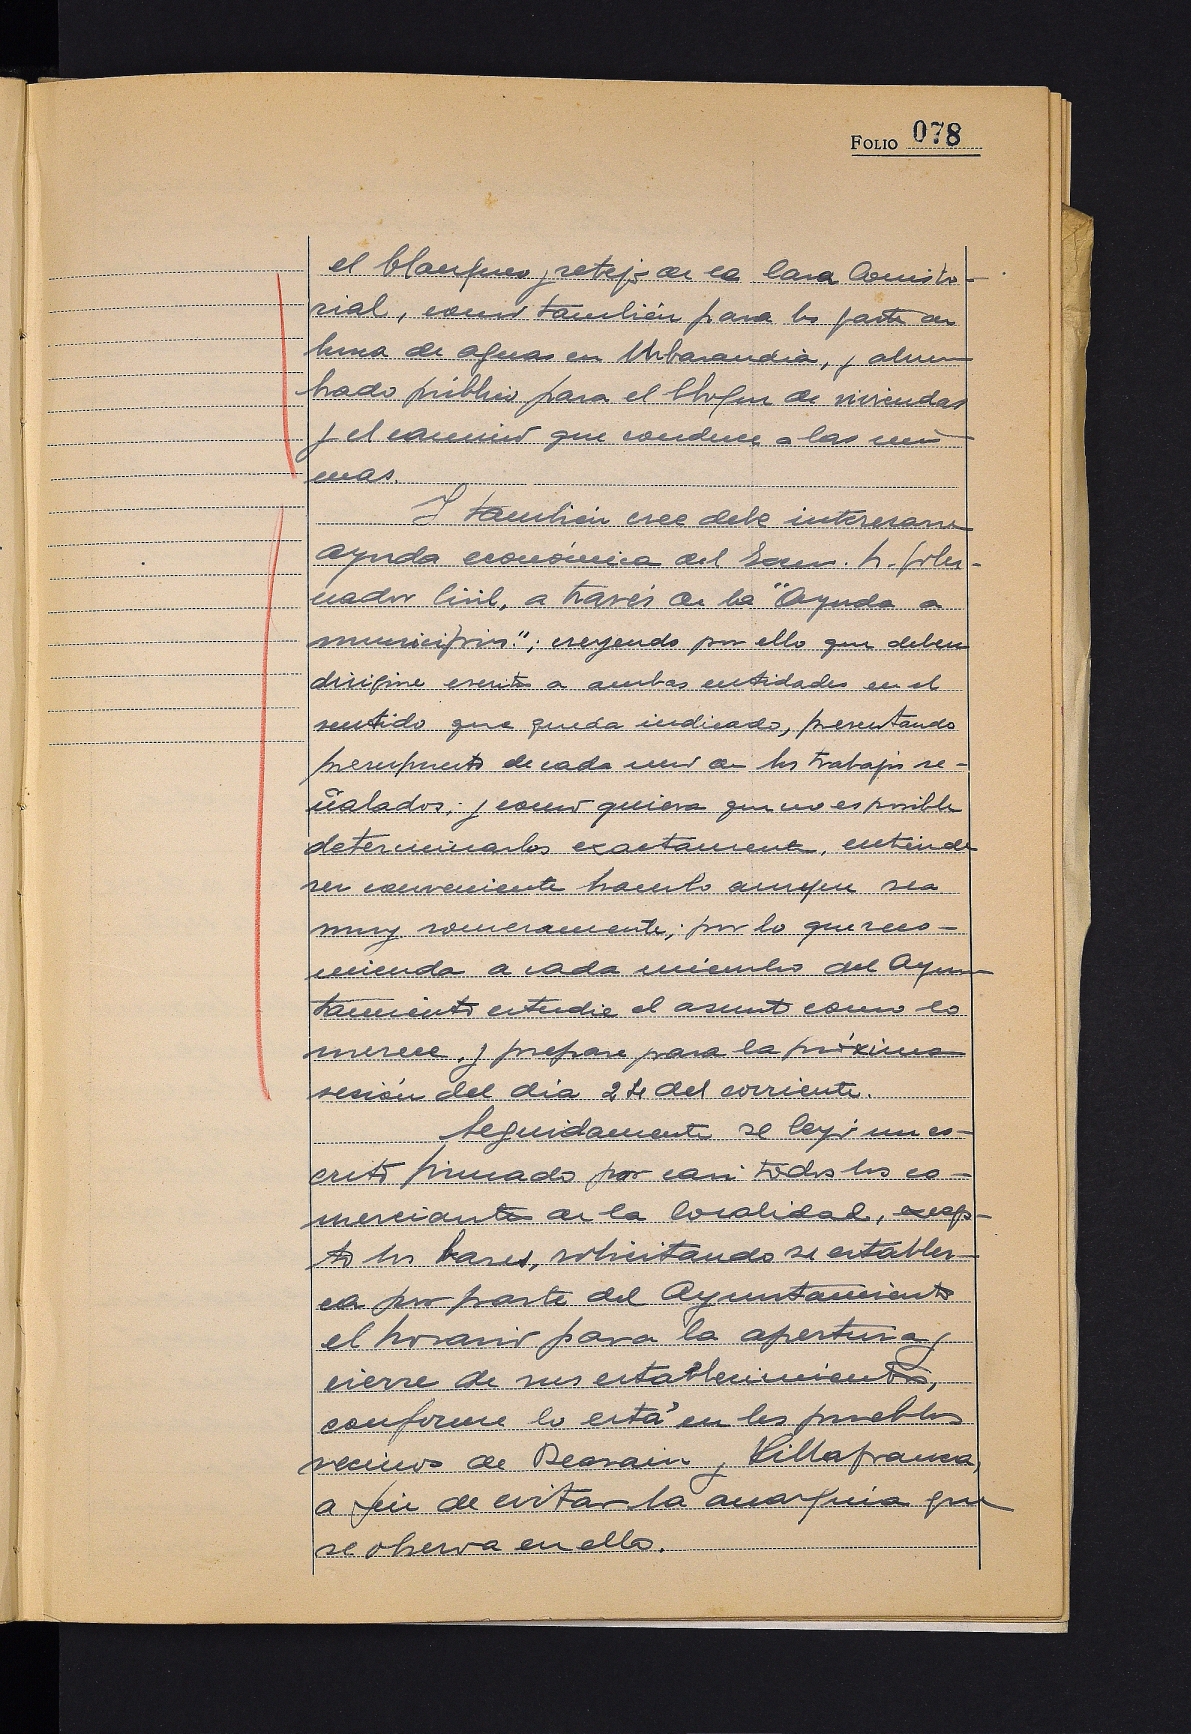 FOLIO 078
el blanqueo y retejo de la Casa Consisto-
rial, como también para los gastos de
luna de aguas en Urbarandia, y alum
brado público para el bloque de viviendas
y el camino que conduce a las mis
mas.
Y también cree debe interesarse
ayuda económica del Excm. Sr. Gober-
nador Civil, a través de la "Ayuda a
municipios"; creyendo por ello que deben
dirigirse escritos a ambas entidades en el
sentido que queda indicado, presentando
presupuesto de cada uno de los trabajos se-
ñalados; y como quiera que no es posible
determinarlos exactamente, entiende
ser conveniente hacerlo aunque sea
muy someramente; por lo que reco-
mienda a cada miembro del Ayun
tamiento estudie el asunto como lo
merece, y prepare para la próxima
sesión del día 24 del corriente.
Seguidamente se leyó un es-
crito firmado por casi todos los co-
merciantes de la localidad, excep-
to los bares, solicitando se establez-
ca por parte del Ayuntamiento
el horario para la apertura y
cierre de sus establecimientos,
conforme lo está en los pueblos
vecinos de Beasain y Villafranca,
a fin de evitar la anarquía que
se observa en ellos.